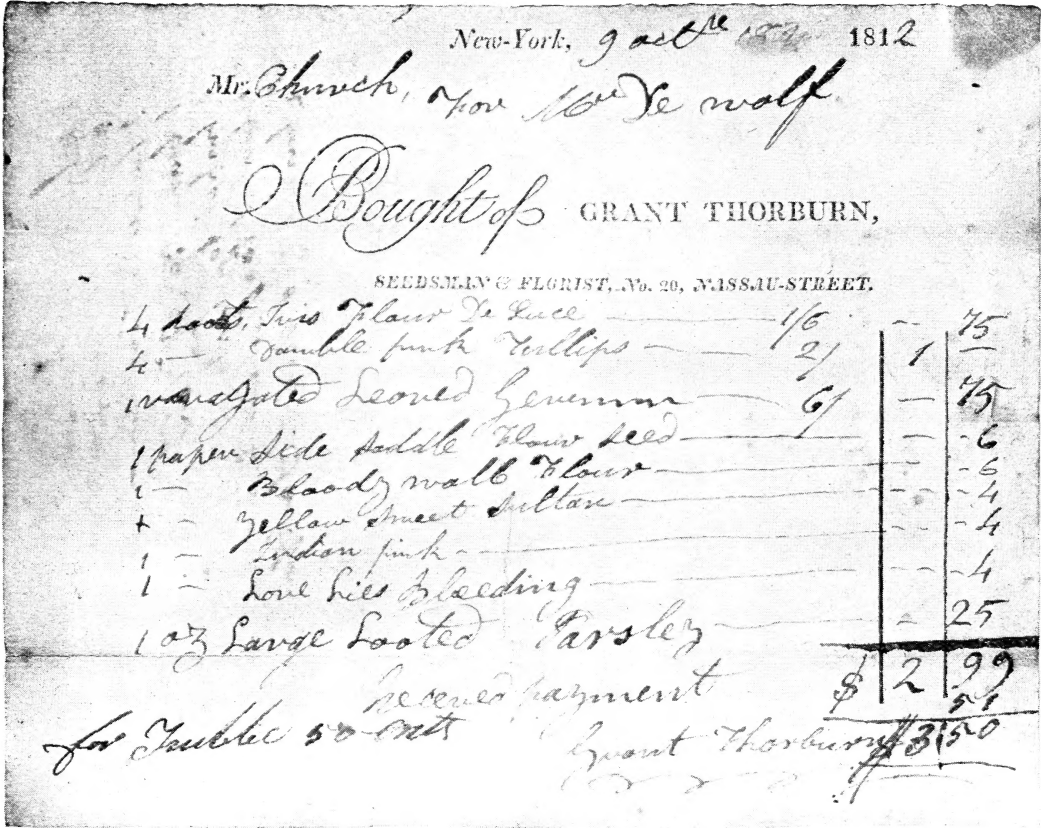 New-York, 9 octre 1812
Mr. Church, For Mr De wolf
Bought of GRANT THORBURN,
SEEDSMAN & FLORIST, No. 20, NASSAU-STREET.
4 Roots, Iris Flour De Luce — 1/6 - 75
4 — Double pink Tullips — 2/ 1 —
1 Leaved 6/ — 75
1 paper Side Saddle Flour Seed — - 6
1 — Bloody wall Flour — - 6
1 - Yellow Sweet Sultan — - 4
1 - Indian pink - - 4
1 - Love Lies Bleeding — - 4
1 oz Large Rooted Parsley — - 25
$ 2 99
Received payment 51
for Truble 50 cents Grant Thorburn $3 50